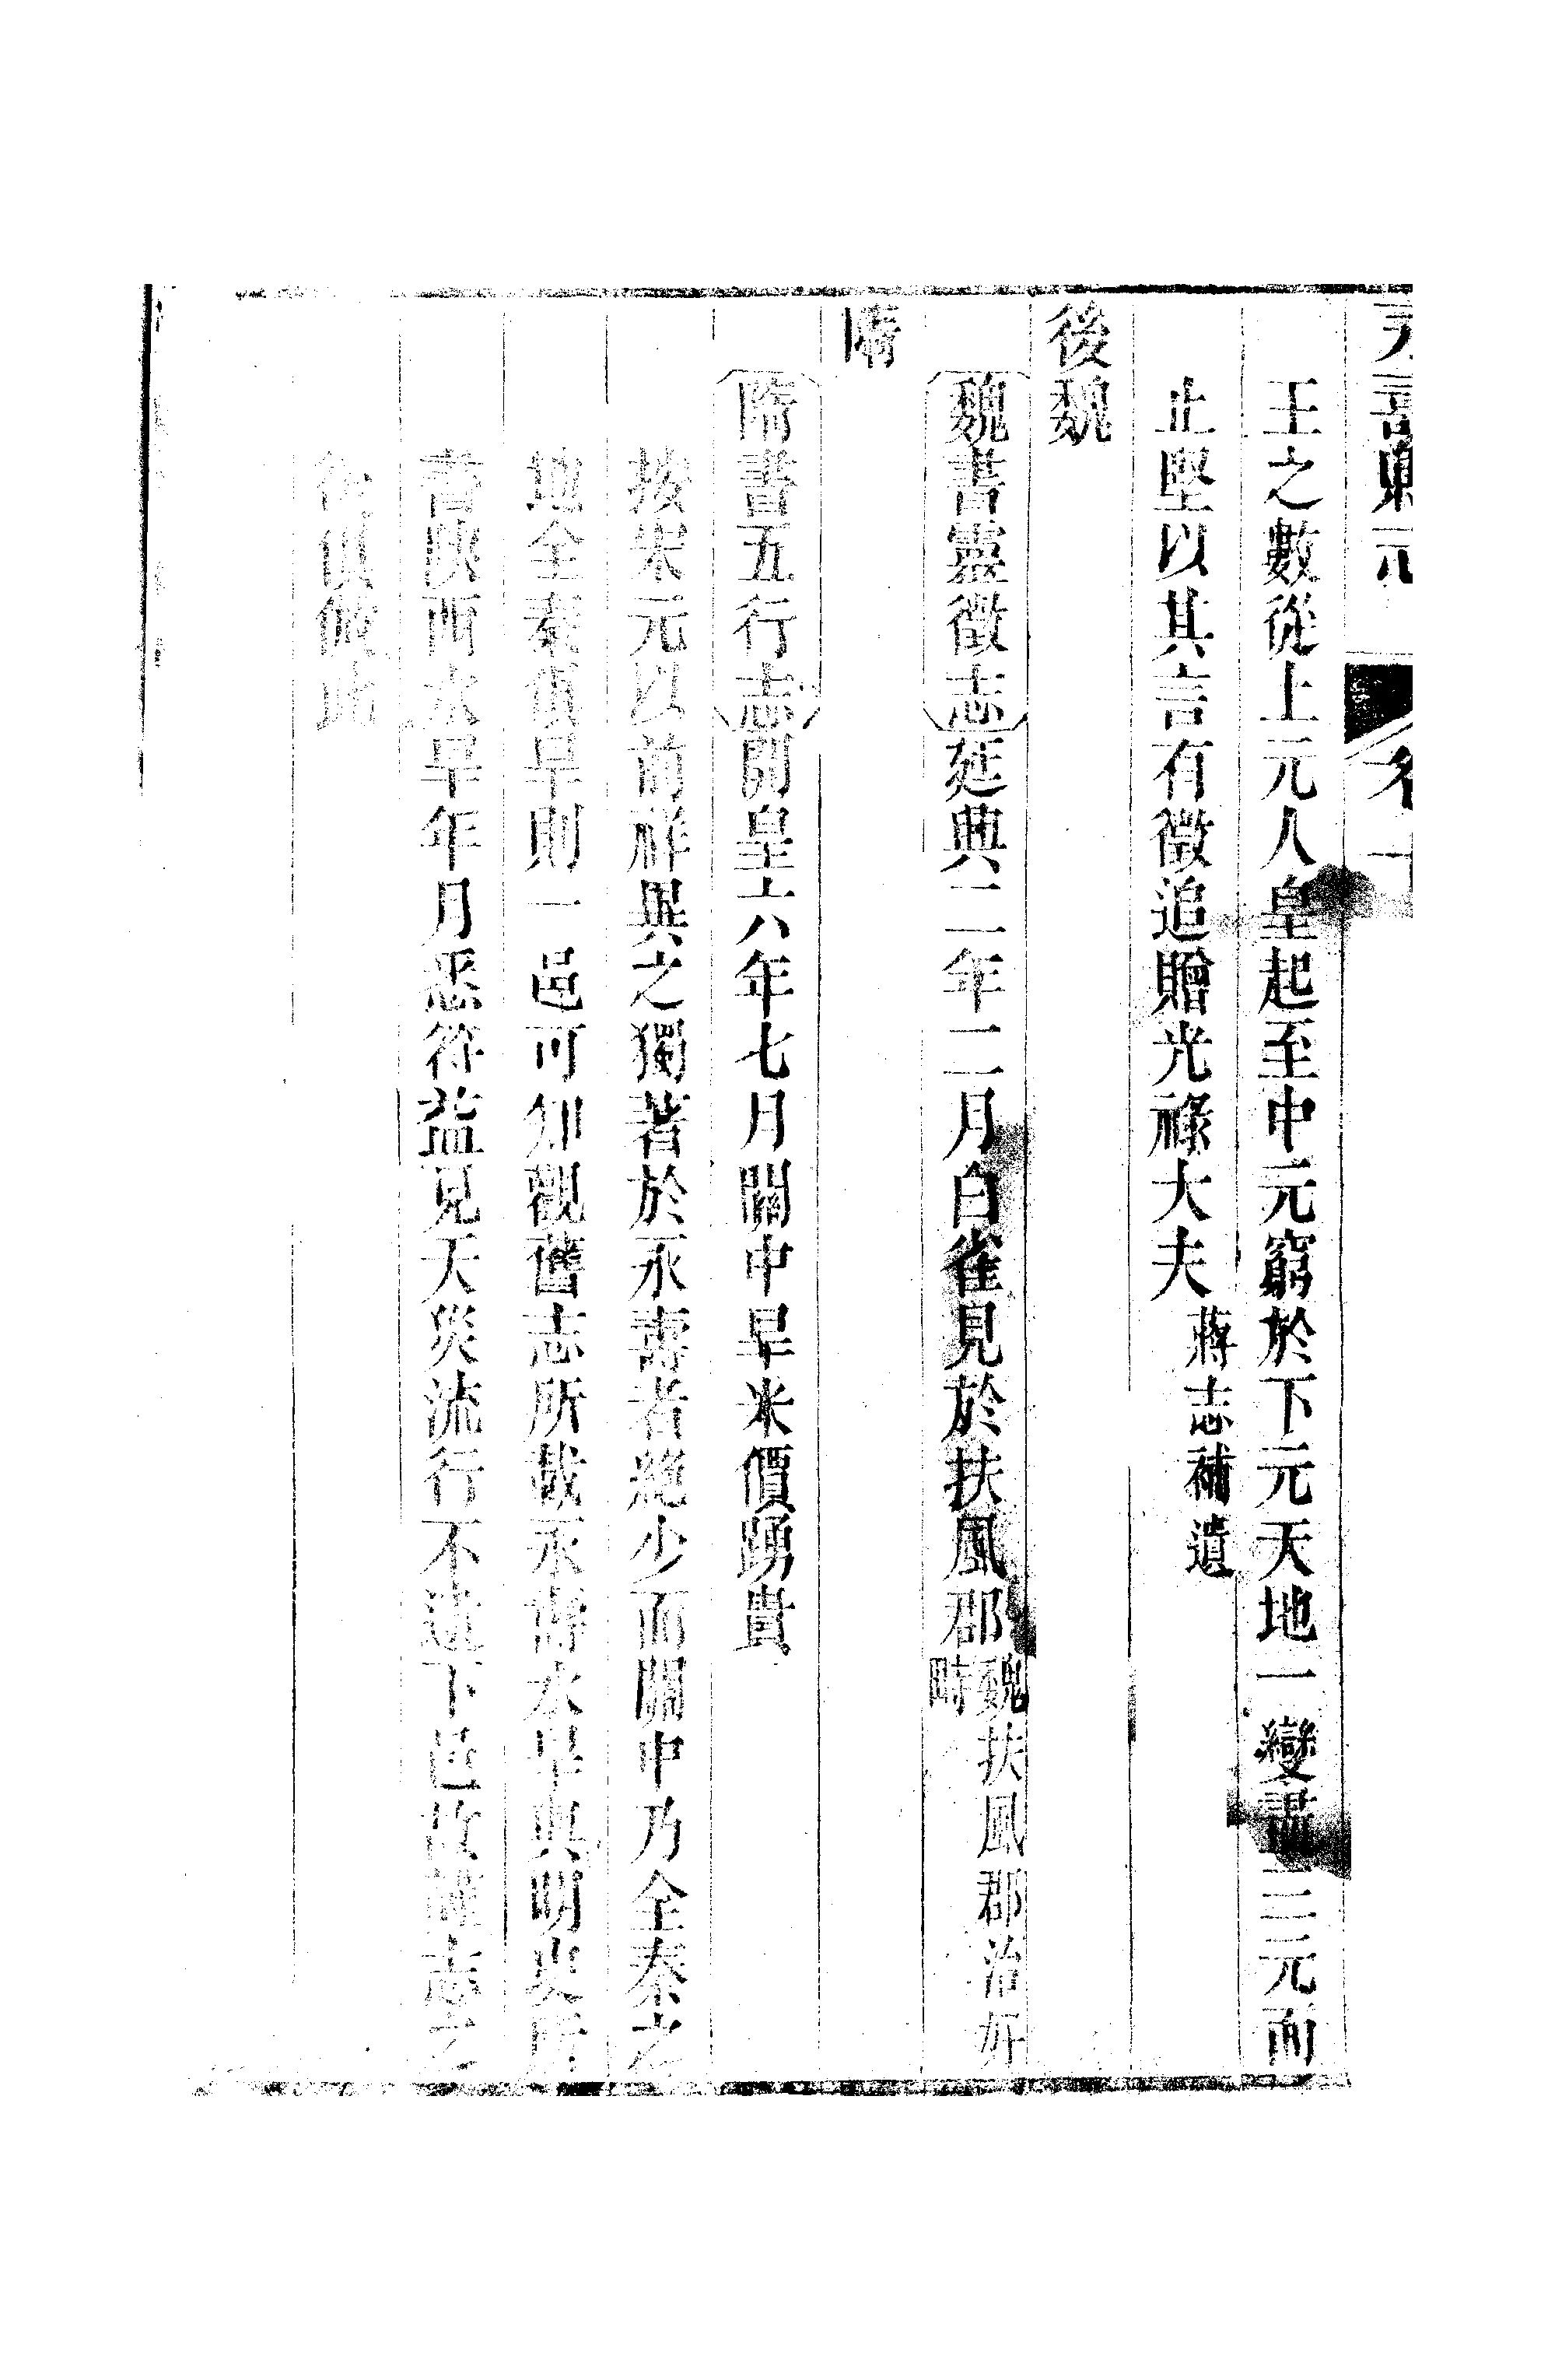 永壽縣志 卷一
王之數從上元人皇起至中元窮於下元天地一變盡三元而
止堅以其言有徵追贈光祿大夫蔣志補遺
後魏
魏書靈徵志延興二年二月白雀見於扶風郡魏扶風郡治好畤
隋
隋書五行志開皇六年七月關中旱米價踴貴
按宋元以前祥異之獨著於永壽者絕少而關中乃全秦之
地全秦俱旱則一邑可知觀舊志所載永壽水旱與明史所
書陝西水旱年月悉符益見天災流行不遺下邑故謹志之
後俱倣此